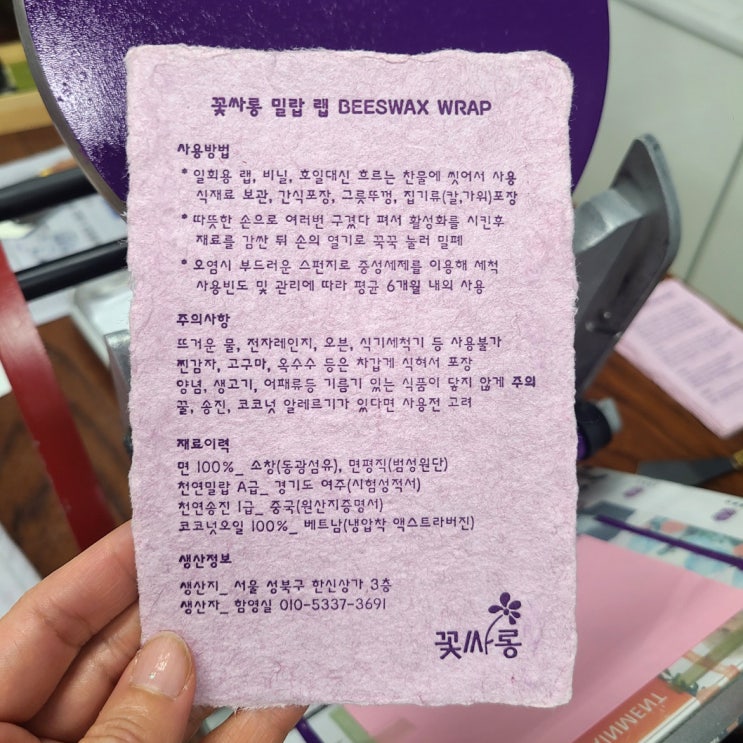 꽃싸롱 밀랍 랩 BEESWAX WRAP
사용방법
* 일회용 랩, 비닐, 호일대신 흐르는 찬물에 씻어서 사용
식재료 보관, 간식포장, 그릇뚜껑, 집기류(칼,가위)포장
* 따뜻한 손으로 여러번 구겼다 펴서 활성화를 시킨후
재료를 감싼 뒤 손의 열기로 꾹꾹 눌러 밀폐
* 오염시 부드러운 스펀지로 중성세제를 이용해 세척
사용빈도 및 관리에 따라 평균 6개월 내외 사용
주의사항
뜨거운 물, 전자레인지, 오븐, 식기세척기 등 사용불가
찐감자, 고구마, 옥수수 등은 차갑게 식혀서 포장
양념, 생고기, 어패류등 기름기 있는 식품이 닿지 않게 주의
꿀, 송진, 코코넛 알레르기가 있다면 사용전 고려
재료이력
면 100%_ 소창(동광섬유), 면평직(범성원단)
천연밀랍 A급_ 경기도 여주(시험성적서)
천연송진 1급_ 중국(원산지증명서)
코코넛오일 100%_ 베트남(냉압착 엑스트라버진)
생산정보
생산지_ 서울 성북구 한신상가 3층
생산자_ 함영실 010-5337-3691
꽃싸롱